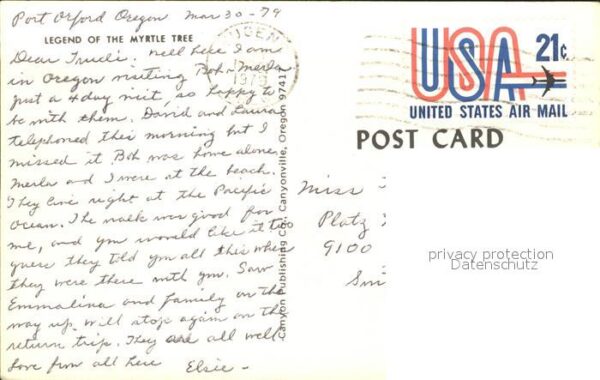 Port Orford Oregon Mar 30-79
LEGEND OF THE MYRTLE TREE
Dear Trudi; Well here I am
in Oregon visiting Bob & Merla
just a 4 day visit, so happy to
be with them. David and Laura
telephoned this morning but I
missed it Bob was home alone,
Merla and I were at the beach.
They live right at the Pacific
Ocean. The walk was good for
me, and you would like it too
guess they told you all this when
they were there with you. Saw
Emmalina and family on the
way up. Will stop again on the
return trip. They are all well
Love from all here Elsie -
Canyon Publishing Co., Canyonville, Oregon 97417
EUGEN
1979
USA 21c
UNITED STATES AIR MAIL
POST CARD
Miss
Platz
9100
privacy protection
Datenschutz